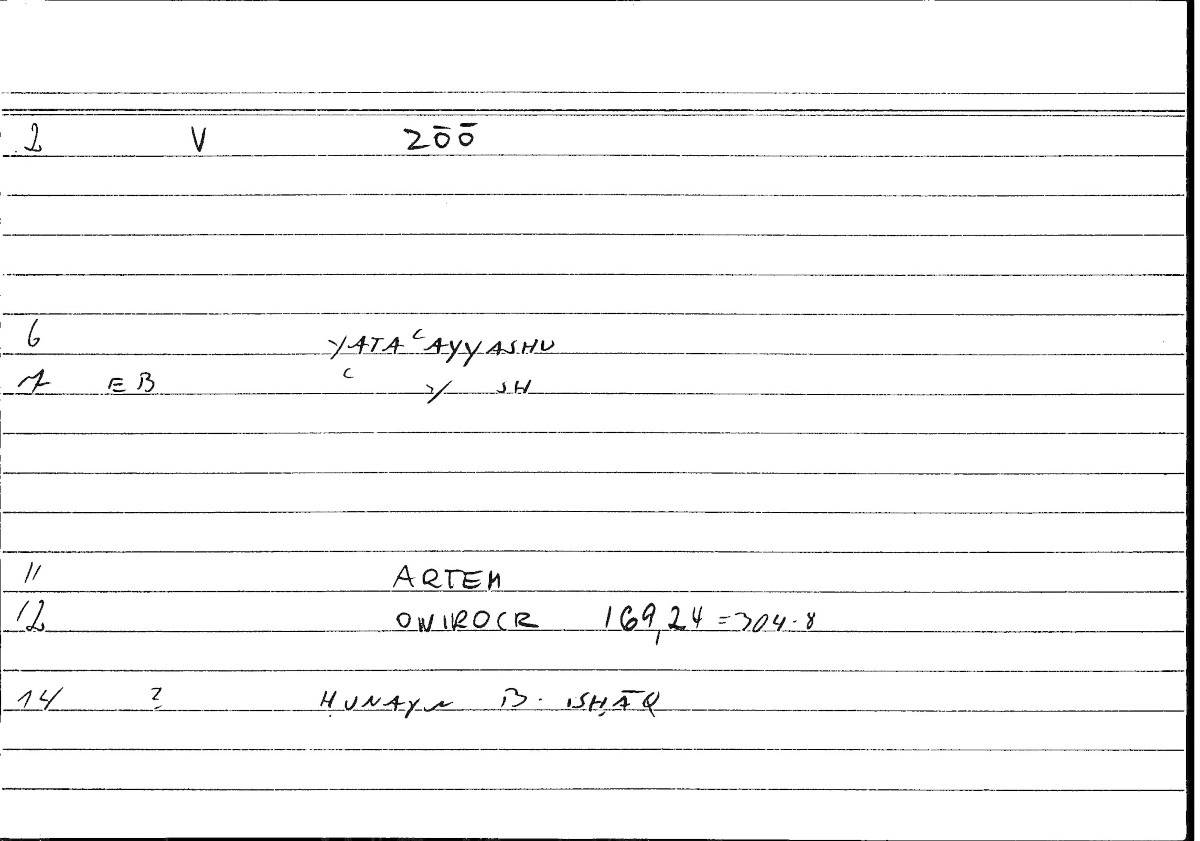 2 V 2ōō
6 YATAʿAYYASHU
7 EB ʿ Y SH
11 ARTEM
12 ONIROCR 169,24 = 304.8
14 ? ḤUNAYN B. ISḤĀQ